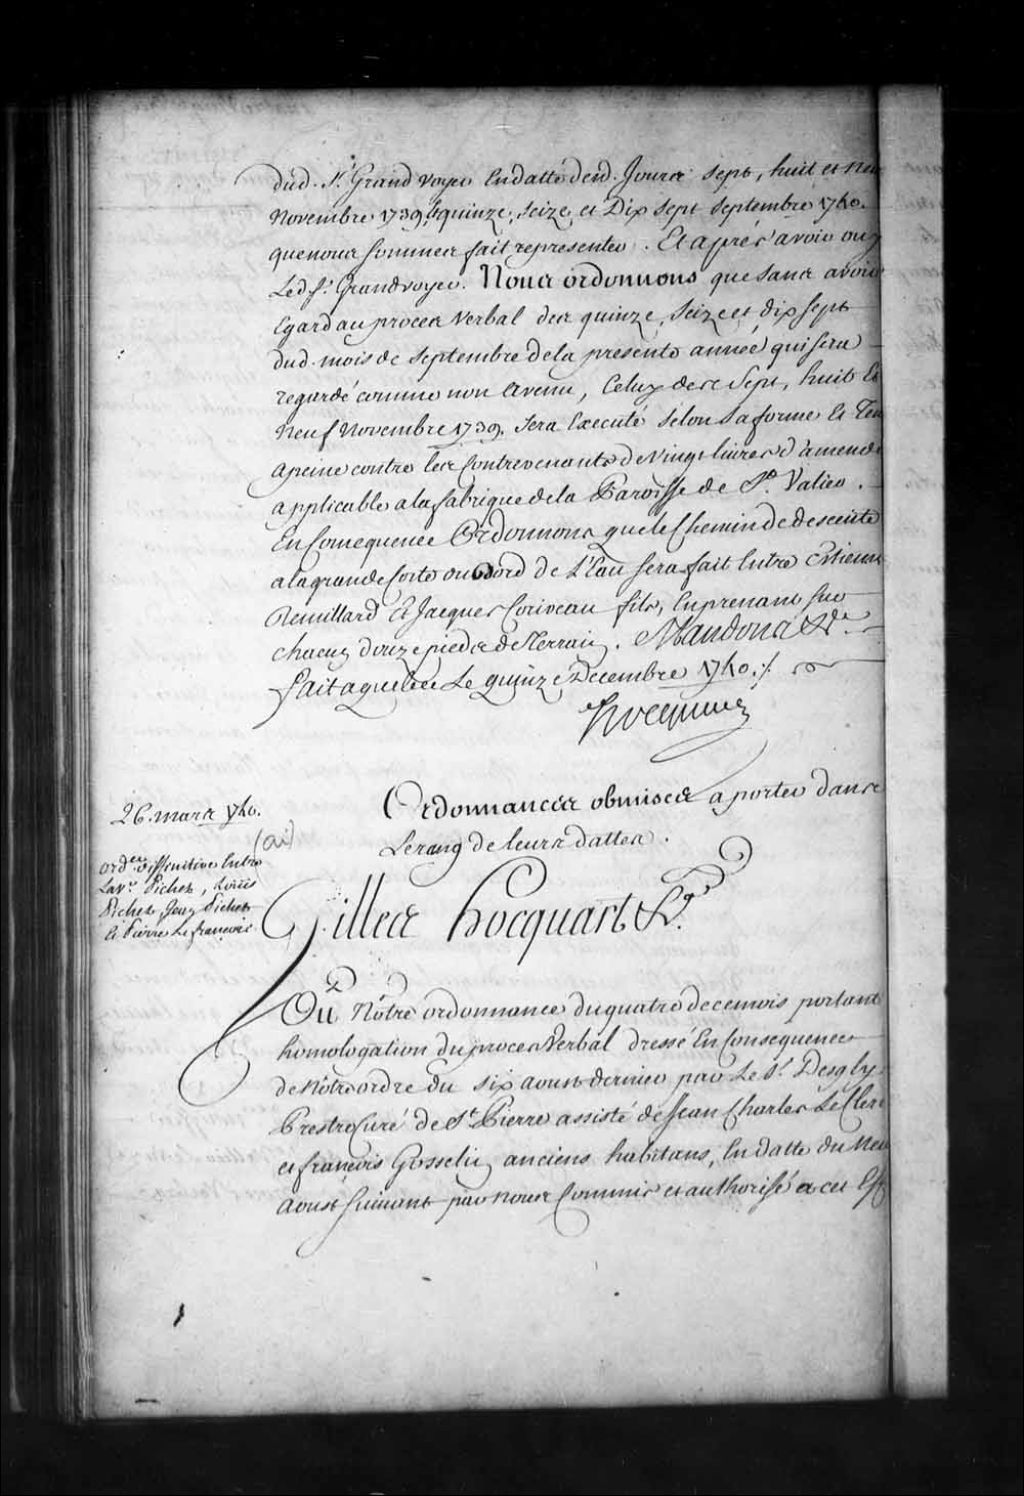 dud. Sr. Grand voyer En datte desd. Jours sept, huit et neu
Novembre 1739, & quinze, seize, et Dix sept Septembre 1740.
que nous sommes fait representer. Et aprés avoir ouy
Led Sr. Grand voyer. Nous ordonnons que sans avoir
Egard au procés Verbal des quinze, Seize et dix sept
dud. mois de Septembre de la presente année qui sera
regardé comme non avenu, Celuy des Sept, huit Et
Neuf Novembre 1739. sera Executé selon sa forme Et Ten
a peine contre les Contrevenants de Vingt livres d'amende
applicable a la fabrique de la Paroisse de St. Valier.
En Consequence Ordonnons que le Chemin de descente
a la grande Coste ou Bord de L'Eau sera fait Entre Estienne
Remillard Et Jacques Coriveau fils, En prenant sur
chacun douze pieds de Terrain. Mandons &a.
fait a quebec Le quinze Decembre 1740. ./.
Hocquart
Ordonnances obmises a porter dans
Le rang de leurs dattes.
26. mars 1740.
(ai)
ordce. diffinitive Entre
Lavt. Pichet, Loüis
Pichet, Jean Pichet
Et Pierre Le françois
Gilles hocquart &a.
Vû Nôtre ordonnance du quatre de ce mois portant
homologation du procés Verbal dressé En Consequence
de Nôtre ordre du six aoust dernier par Le Sr. Desgly
Prestre Curé de St. Pierre assisté de Jean Charles Le Clerc
et françois Gosselin anciens habitans, En datte du Neu
aoust suivant par nous Commis et authorisé a cet Eff